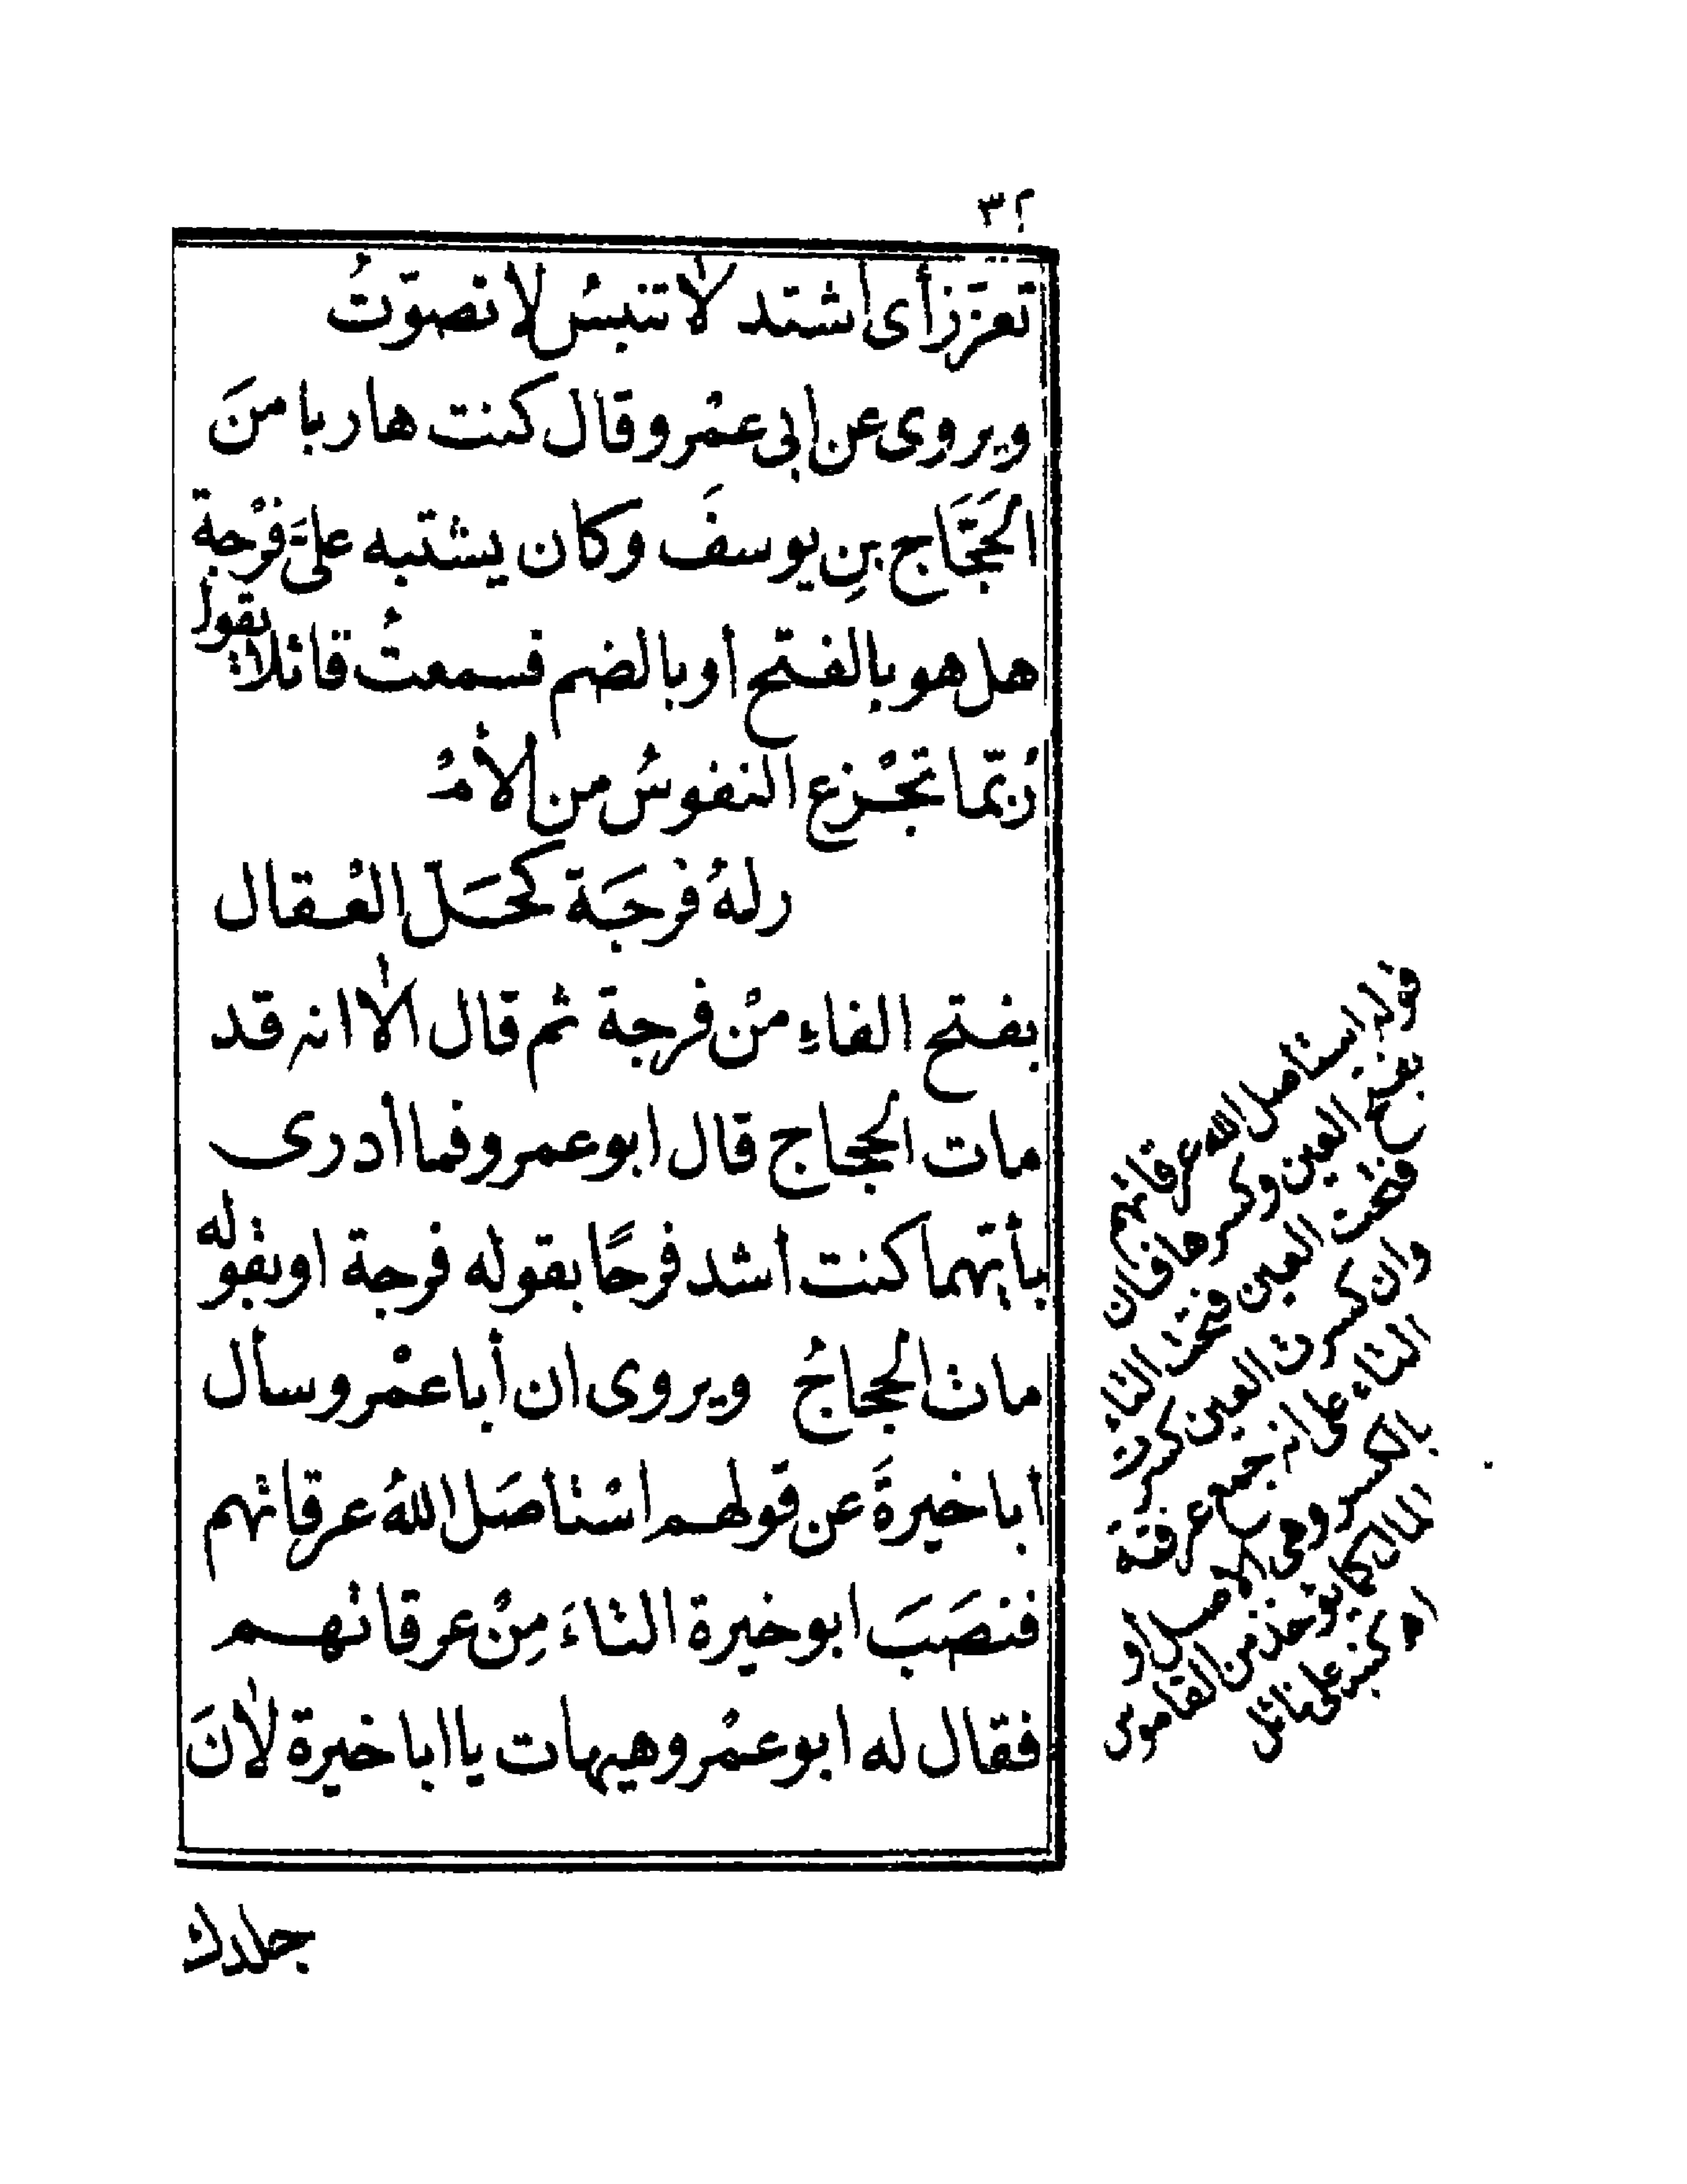 ٣٢
تعزّز أى اشتد لا تنبسُ لا تصوّتُ
ويروى عن ابى عمْرو قال كنت هاربا منَ
الحَجَّاج بنِ يوسفَ وكان يشتبه علىَّ فرْجة
هل هو بالفتح او بالضم فسمعتُ قائلا يقول
رُبّما تجْزع النفوسُ من الأمْ
رلهُ فرْجَة كحَلّ العْقال
بفتح الفاءِ منْ فرجة ثم قال ألا انه قد
مات الحجاج قال ابو عمرو فما أدرى
بأيّهما كنت اشد فرحًا بقوله فرجة او بقوله
مات الحجاجُ ويروى ان أبا عمْرو سأل
ابا خيرةَ عن قولهم اسْتاصَل اللهُ عرقاتهم
فنصَبَ ابو خيرة التاءَ مِنْ عرقاتهم
فقال له ابو عمْرو هيهات يا ابا خيرة لأنَ
جلدك
قوله استأصل الله عرقاتهم
بفتح العين وكسرها فان
فتحت العين فتحت التاء
وان كسرت العين كسرت
التاء على انه جمع عرقة
بالكسر وهى الاصل او
المال كما يؤخذ من القاموس